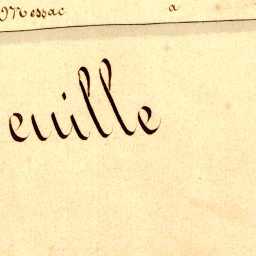 Messac a
euille